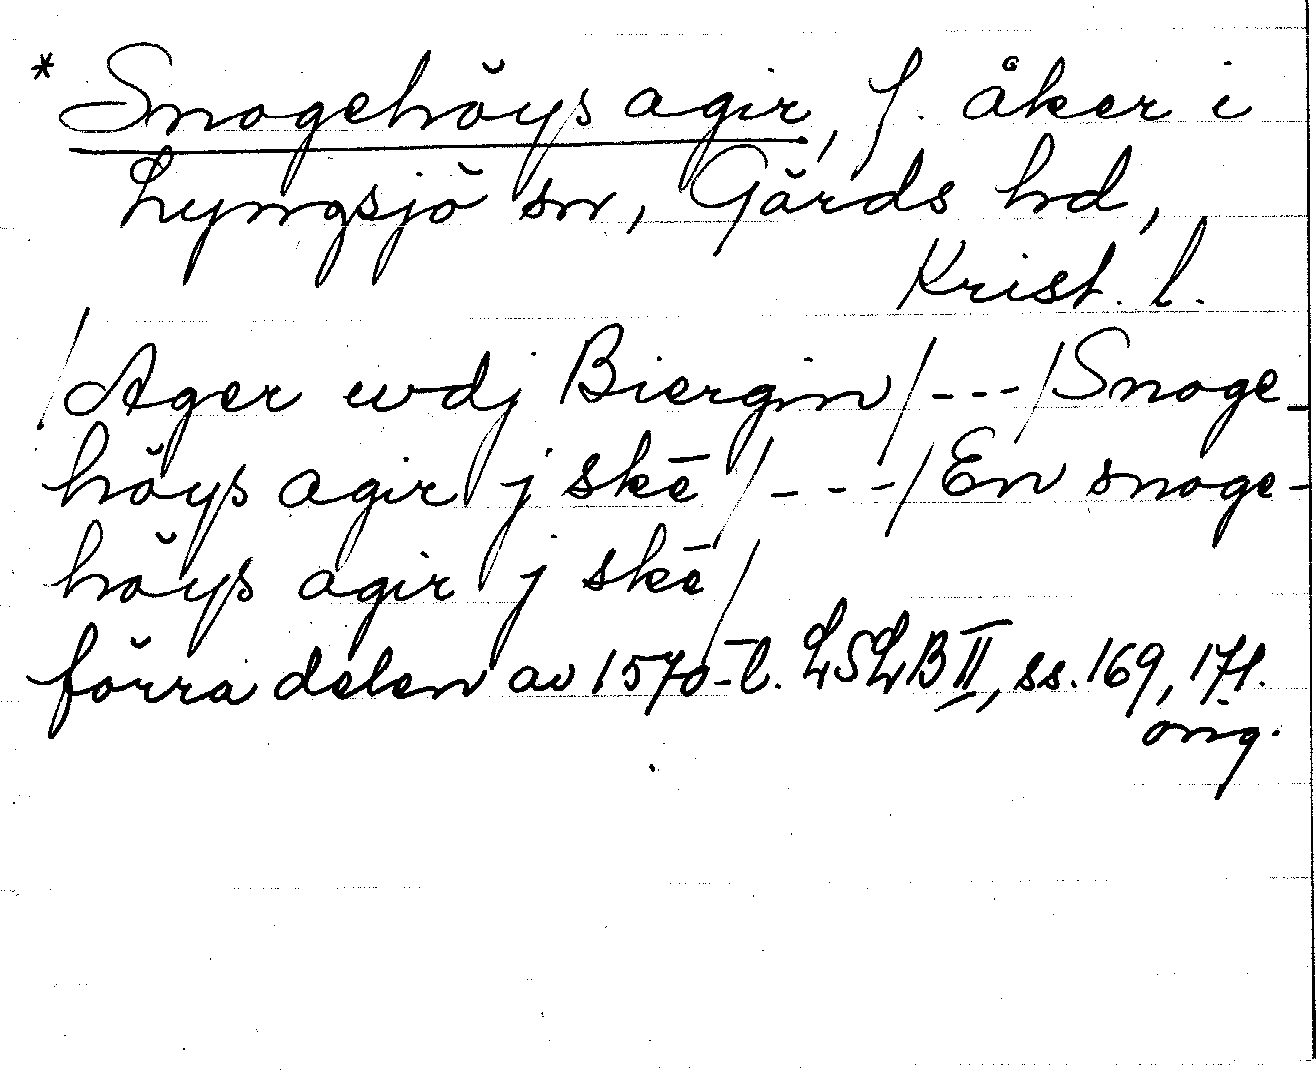 * Snogehöys agir, f. åker i
Lyngsjö sn, Gärds hd,
Krist. l.
/Ager wdj Biergin/---/Snoge-
höys agir j skē/---/En snoge-
höys agir j skē/
förra delen av 1570-t. LSLB II, ss. 169, 171.
orig.